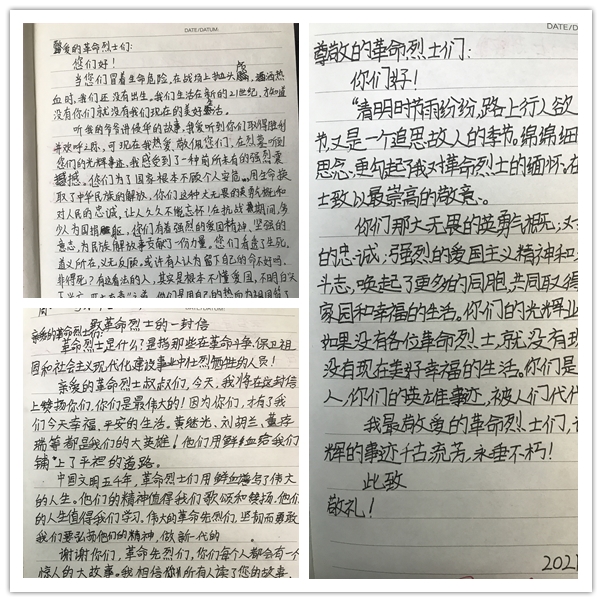 DATE/DATUM
亲爱的革命烈士们:
您们好!
当您们冒着生命危险,在战场上抛头颅,洒热
血时,我们还没有出生。我们生活在新的21世纪,
没有你们就没有我们现在的美好生活。
听爷爷讲侵华的故事,我爱听到你们取得胜利
并欢呼
您们的光辉事迹,我感受到了一种前所未有的强烈震
撼。你们为了国家根本不顾个人安危。用生命换
取了中华民族的解放,你们这种大无畏的英勇气概和
对人民的忠诚,让人久久不能忘怀!在抗战期间,多
少人为国捐躯,您们有着强烈的爱国精神,坚强的
意志,为民族解放事贡献了一份力量。您们看盡了生死,
道义所在,义无反顾,或许有人认为留下自己的命不好吗
非得死?有这看法的人,其实是根本不懂爱国,不明白
致革命烈士的一封信
亲爱的革命烈士们:
革命烈士是什么?是指那些在革命斗争、保卫祖
国和社会主义现代化建设事业中壮烈牺牲的人员!
亲爱的革命烈士叔叔们,今天,我将在这封信
上赞扬你们,你们是最伟大的!因为你们,才有了我
们今天幸福,平安的生活。黄继光、刘胡兰、董存
瑞等都是我们的大英雄!他们用鲜血给我们
铺上了平坦的道路。
中国文明五千年,革命烈士们用鲜血谱写了伟大
的人生。他们的精神值得我们歌颂和赞扬,他们
的人生值得我们学习,伟大的革命先烈们,坚韧而勇敢
我们要弘扬他们的精神,做新一代的
谢谢你们,革命先烈们,你们每个人都会有一个
惊人的大故事。我相信你们所有人读了您的故事,
DATE/D
尊敬的革命烈士们:
你们好!
“清明时节雨纷纷,路上行人欲
节,又是一个追思故人的季节。绵绵细
思念,更勾起了我对革命烈士的缅怀。在
士致以最崇高的敬意。
你们那大无畏的英勇气概;对
的忠诚;强烈的爱国主义精神和
斗志,唤起了更多的同胞,共同取得
家园和幸福的生活。你们的光辉业
如果没有各位革命烈士,就没有现
没有现在美好幸福的生活。你们是
人,你们的英雄事迹,被人们代代
我最敬爱的革命烈士们,
辉的事迹千古流芳,永垂不朽!
此致
敬礼!
2021